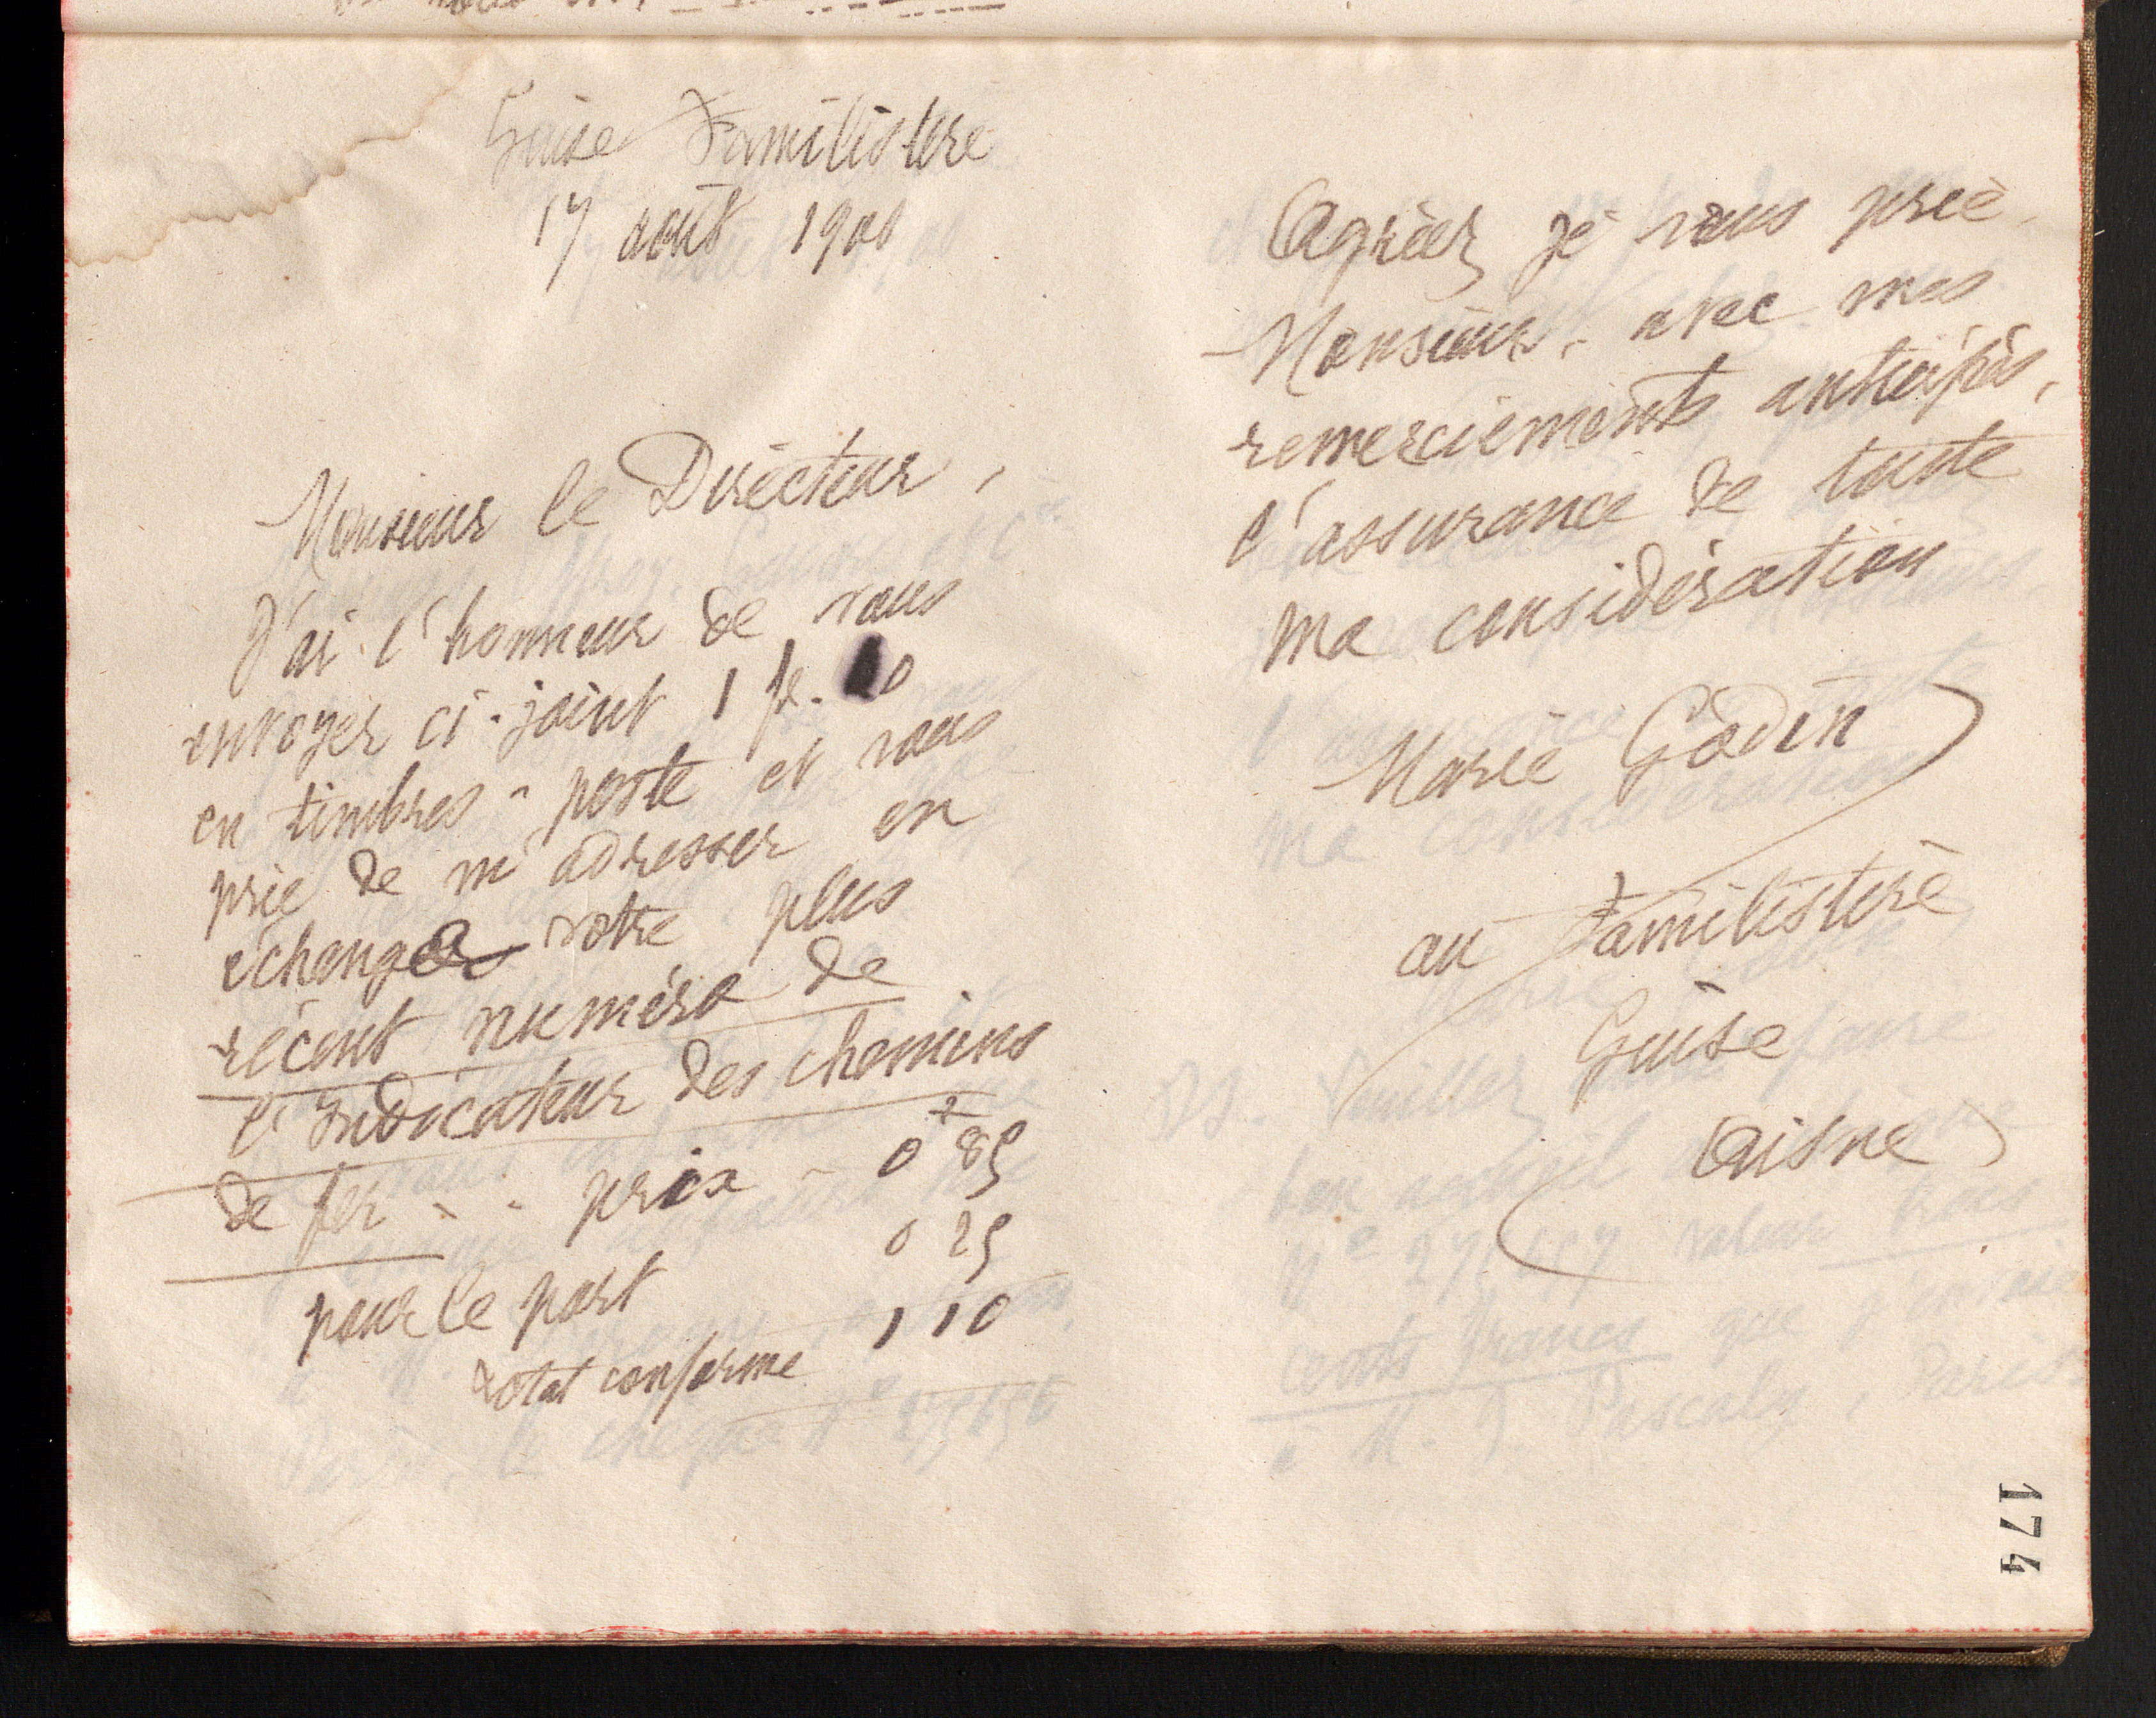 Guise Familistère
17 août 1900
Monsieur le Directeur,
J'ai l'honneur de vous
envoyer ci-joint 1 fr. 10
en timbres-poste et vous
prie de m'adresser en
échange votre plus
récent numéro de
l'Indicateur des chemins
de fer - - prix - 0f 85
pour le port 0 25
total conforme 1 10
Agréez je vous prie,
Monsieur, avec mes
remerciements anticipés,
l'assurance de toute
ma considération
Marie Godin
au Familistère
Guise
Aisne
174